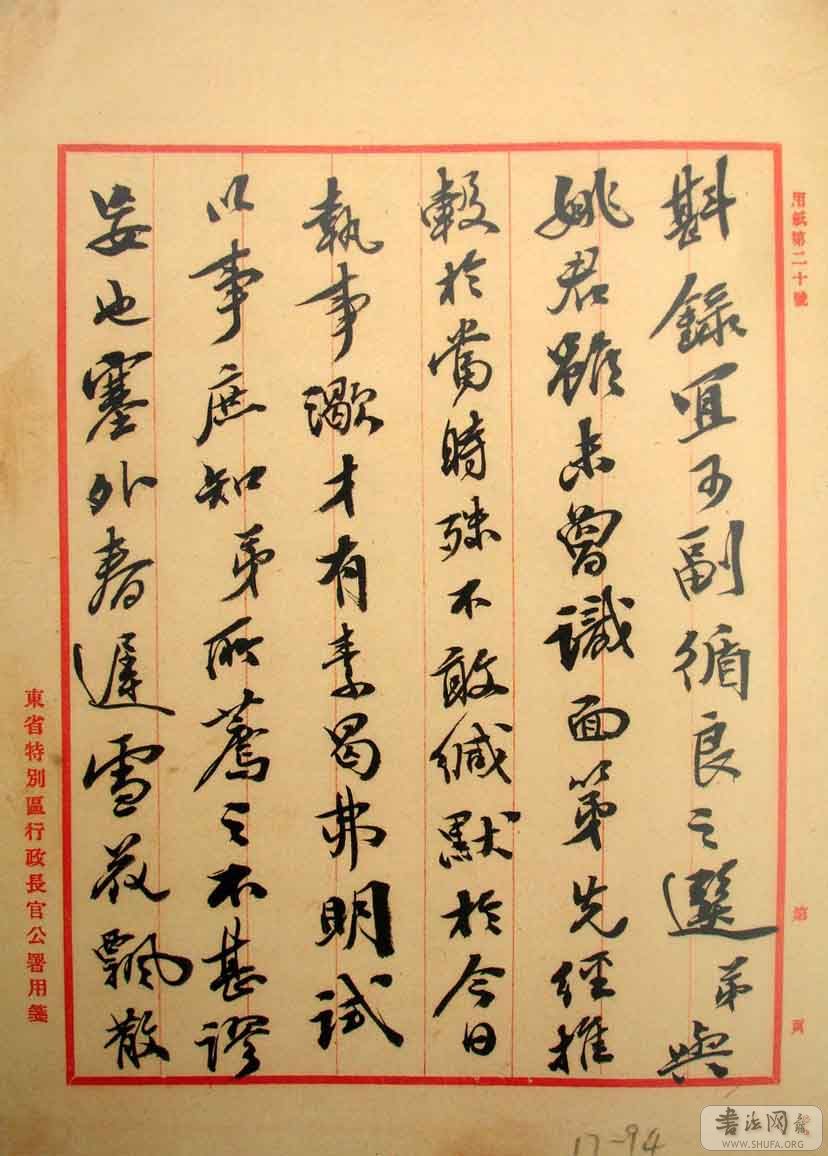 用紙第二十號
第 頁
斟錄宜可副循良之選弟與
姚君雖未曾識面第先經推
轂於當時殊不敢緘默於今日
執事潊才有素曷弗明試
以事庶知弟所薦之不甚謬
妄也塞外春遲雪花飄散
東省特別區行政長官公署用箋
17-94
書法网
WWW.SHUFA.ORG